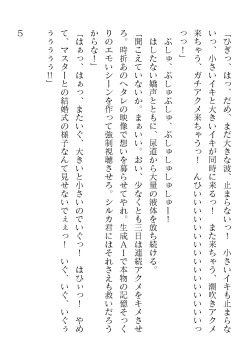 「ひぎっ、はっ、だめ、まだ大きな波、止まらないっ！　小さいイキも止まらな
いっ、小さいイキと大きいイキが同時に来るっ！　また来ちゃう、潮吹きアクメ
来ちゃう、ガチアクメ来ちゃうっ！　んひぃぃぃぃぃぃぃぃぃぃぃぃぃっ
っっ！」
ぷしゅ、ぷしゅぷしゅ、ぷしゅしゅしゅしゅー！
はしたない嬌声とともに、尿道から大量の液体を放ち続ける。
「聞こえていないか。まぁいい。おい、少なくとも三日は連続アクメをキメさせ
ろ。時折あのヘタレの映像で想いを募らせてやれ。生成ＡＩで本物の記憶そっく
りのエモいシーンを作って強制視聴させろ。シルカ君にはそれさえも救いだろう
からな！」
「はぁっ、はぁっ、またいぐ、大きいと小さいのでいぐっ！　はひぃっ！　やめ
て、マスターとの結婚式の様子なんて見せないでぇぇっ！　いぐ、いぐ、いぐぅ
ぅぅぅぅぅっ!!」
5